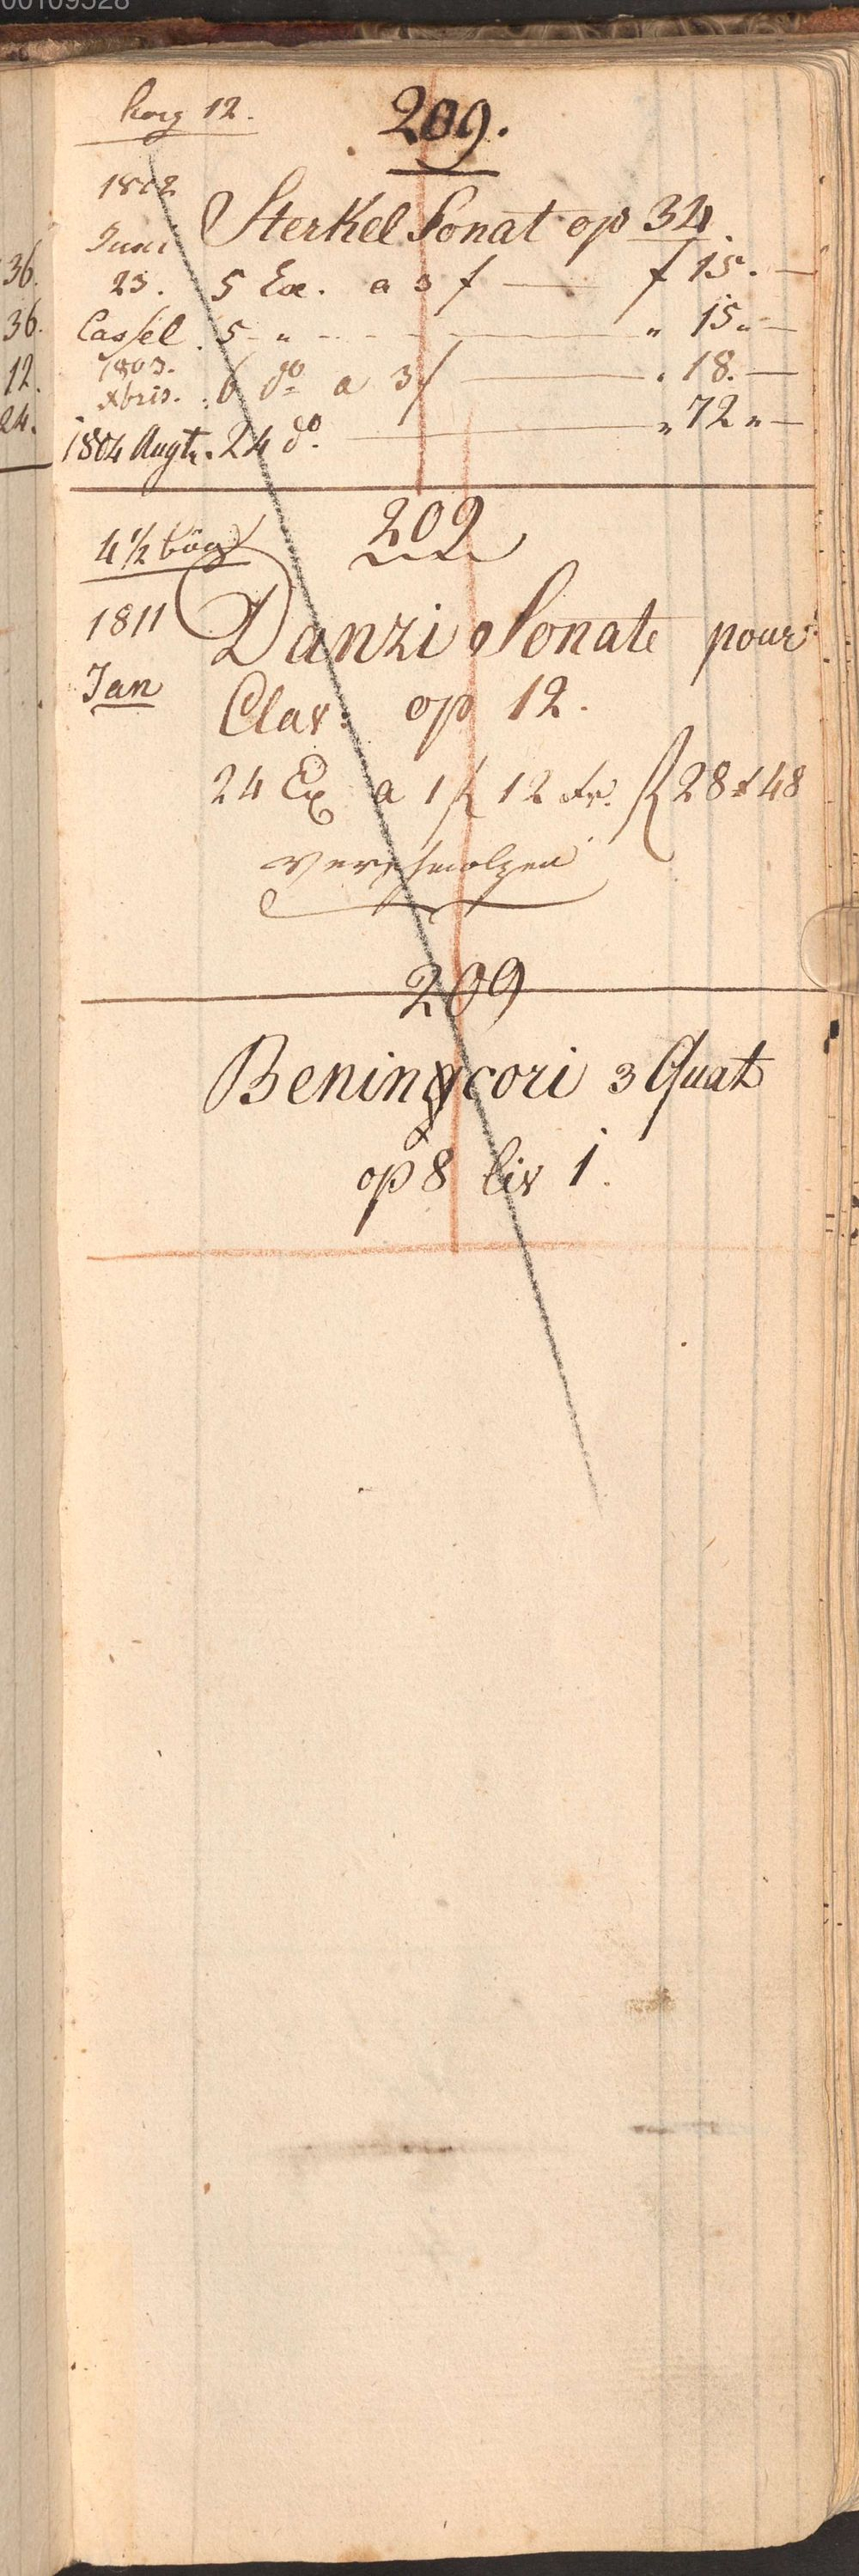 00109528
36.
36.
12.
24.
borg 12.
209.
1802 Sterkel Sonat op 34.
Juni
23. 5 Ex. a 3 f — f 15. —
Cassel. 5 " — " 15 " —
1803.
Xbris. 6 do a 3 f — " 18. —
1804 Augt. 24 do. — " 72 " —
4 1/2 bög 209
1811 Danzi Sonate pour
Jan Clav: op 12.
24 Ex a 1 f 12 Xr. f 28 x 48
verschmolzen
209
Benincori 3 Quat
op 8 liv 1.